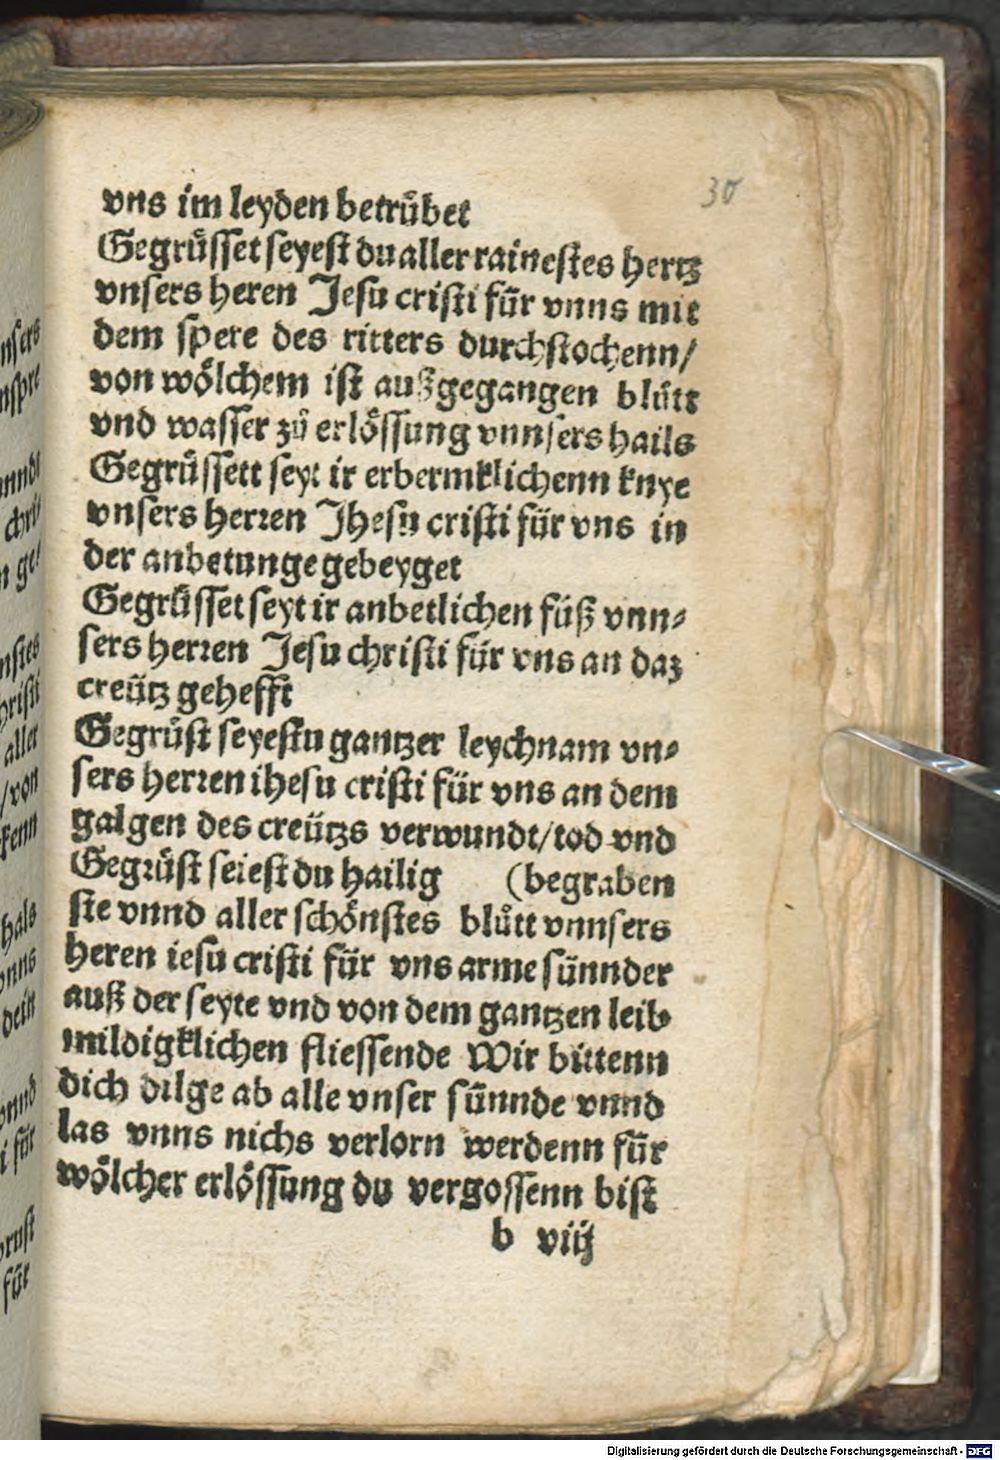 30
vns im leyden betruͤbet
Gegruͤsset seyest du aller rainestes hertz
vnsers heren Jesu cristi fuͤr vnns mit
dem spere des ritters durchstochenn/
von woͤlchem ist außgegangen bluͦtt
vnd wasser zuͦ erloͤssung vnnsers hails
Gegruͤssett seyt ir erbermklichenn knye
vnsers herren Jhesu cristi fuͤr vns in
der anbetunge gebeyget
Gegruͤsset seyt ir anbetlichen fuͤß vnn⸗
sers herren Jesu christi fuͤr vns an daz
creuͤtz gehefft
Gegruͤst seyestu gantzer leychnam vn⸗
sers herren ihesu cristi fuͤr vns an dem
galgen des creuͤtzs verwundt/tod vnd
Gegruͤst seiest du hailig (begraben
ste vnnd aller schoͤnstes bluͦtt vnnsers
heren iesu cristi fuͤr vns arme suͤnnder
auß der seyte vnd von dem gantzen leib
mildigklichen fliessende Wir bittenn
dich dilge ab alle vnser suͤnnde vnnd
las vnns nichs verlorn werdenn fuͤr
woͤlcher erloͤssung du vergossenn bist
b viij
Digitalisierung gefördert durch die Deutsche Forschungsgemeinschaft - DFG